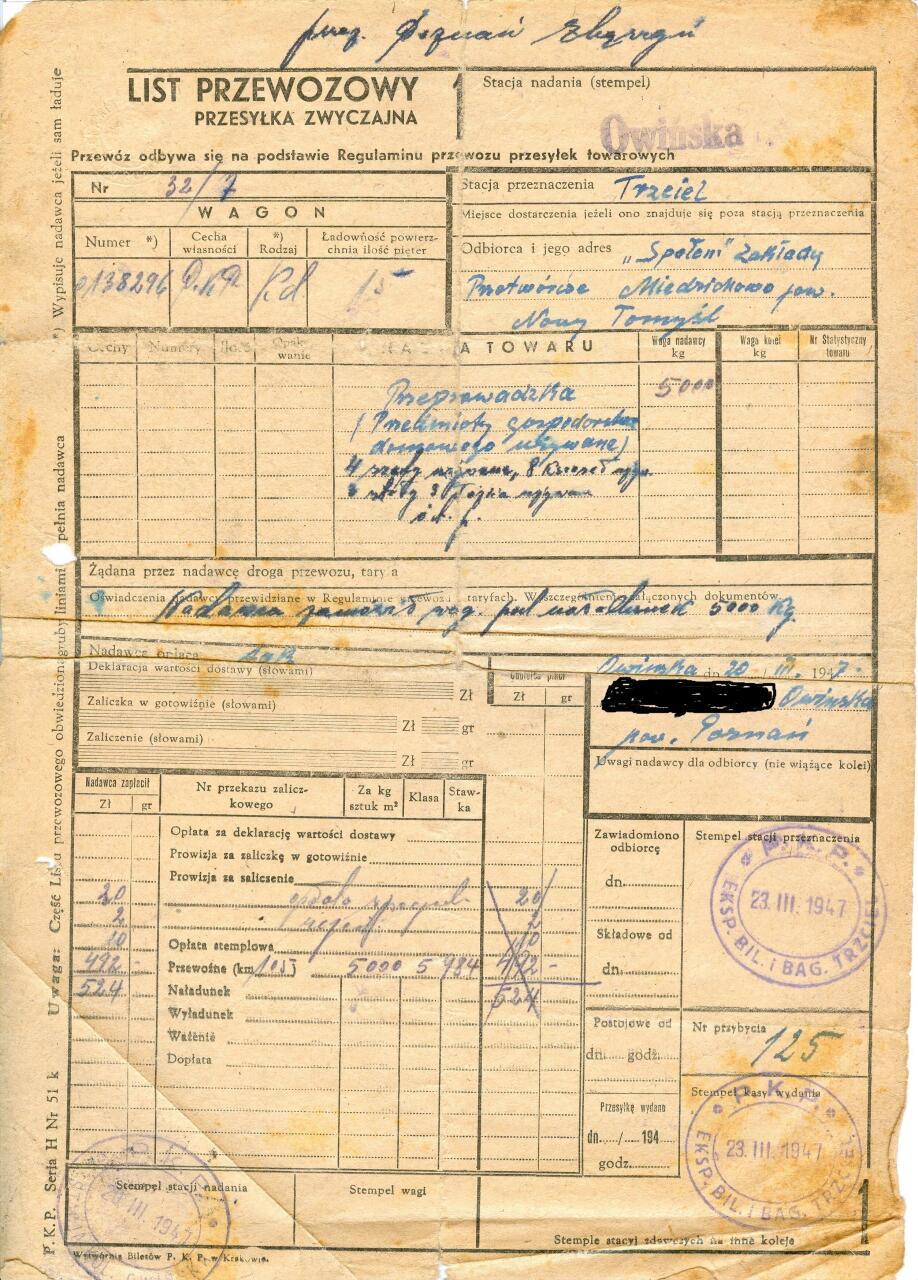 Poznań
LIST PRZEWOZOWY 1
PRZESYŁKA ZWYCZAJNA
Stacja nadania (stempel)
Owińska
Przewóz odbywa się na podstawie Regulaminu przewozu przesyłek towarowych
Nr 32/7
WAGON
Numer *) Cecha własności *) Rodzaj Ładowność powierzchnia ilość pięter
138296 P.K.P. Kd 15
Stacja przeznaczenia Trzciel
Miejsce dostarczenia jeżeli ono znajduje się poza stacją przeznaczenia
Odbiorca i jego adres „Społem" Zakłady
Przetwórcze Miedzichowo pow.
Nowy Tomyśl
Cechy Numery Ilość Opakowanie TOWARU Waga nadawcy kg Waga kolei kg Nr Statystyczny towaru
Przeprowadzka 5000
(Przedmioty gospodarstwa
domowego używane)
4 szafy używane, 8 krzeseł
i t. p.
Żądana przez nadawcę droga przewozu, tary a
Oświadczenia nadawcy przewidziane w Regulaminie przewozu i taryfach. Wyszczególnienie załączonych dokumentów.
Nadawca wag. 5000 Kg
Nadawca opłaca
Deklaracja wartości dostawy (słowami)
Zł
Zaliczka w gotowiźnie (słowami)
Zł gr
Zaliczenie (słowami)
Zł gr
Zł gr
Owińska dn 20 III. 1947.
Owińska
pow. Poznań
Uwagi nadawcy dla odbiorcy (nie wiążące kolei)
Nadawca zapłacił
Zł gr
Nr przekazu zaliczkowego Za kg sztuk m² Klasa Stawka
Opłata za deklarację wartości dostawy
Prowizja za zaliczkę w gotowiźnie
Prowizja za zaliczenie
20 20
2 2
10 Opłata stemplowa 10
492 - Przewoźne (km 105) 5000 5 984 -
524 Naładunek 524
Wyładunek
Ważenie
Dopłata
Zawiadomiono odbiorcę
dn.
Składowe od
dn.
Postojowe od
dn. godz.
Przesyłkę wydano
dn. / 194
godz.
Stempel stacji przeznaczenia
P.K.P.
23. III. 1947
EKSP. BIL. i BAG. TRZCIEL
Nr przybycia
125
Stempel kasy wydania
P.K.P.
23. III. 1947
EKSP. BIL. i BAG. TRZCIEL
Stempel stacji nadania
20. III. 1947
Stempel wagi
Stemple stacyj zdawczych na inne koleje
1
Wytwórnia Biletów P. K. P. w Krakowie.
*) Wypisuje nadawca jeżeli sam ładuje
Uwaga: Część Listu przewozowego obwiedzioną grubymi liniami wypełnia nadawca
P. K. P. Seria H Nr 51 k